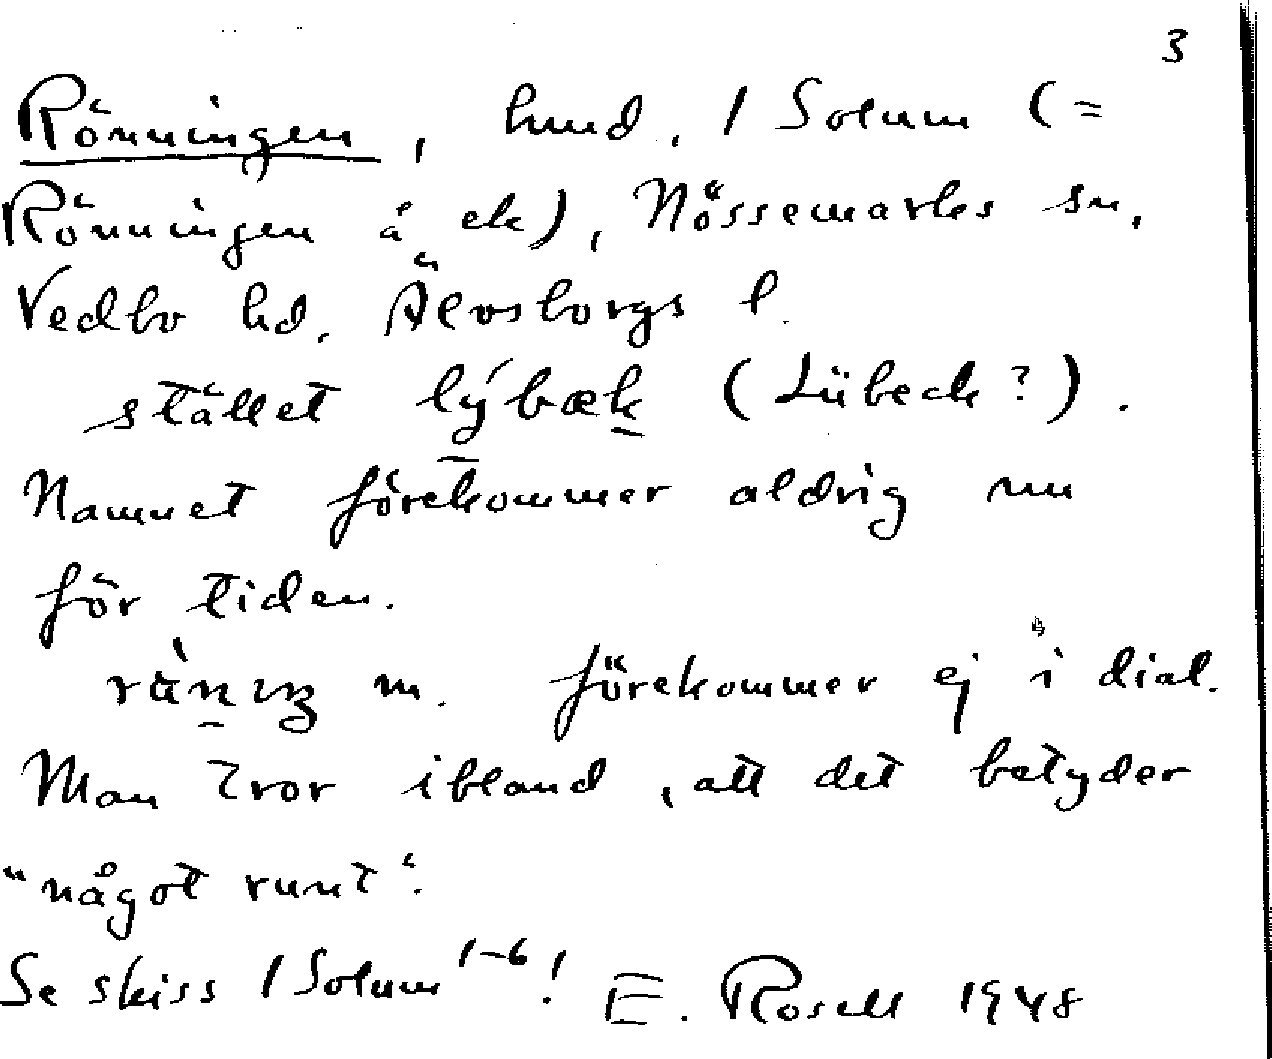 3
Rönningen, hmd. 1 Solum (=
Rönningen å ek), Nössemarks sn,
Vedbo hd. Älvsborgs l.
stället lýbæk (Lübeck?).
Namnet förekommer aldrig nu
för tiden.
m. förekommer ej i dial.
Man tror ibland, att det betyder
"något runt".
Se skiss 1 Solum 1-6! E. Rosell 1948